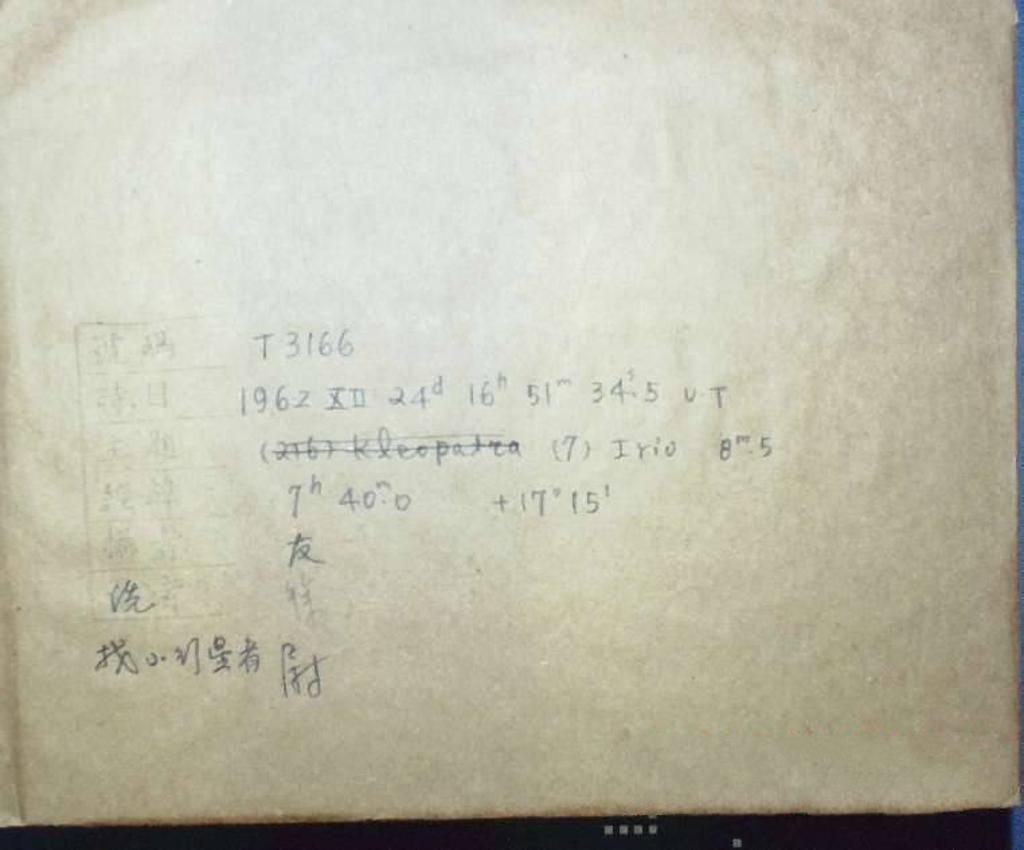 號碼 T 3166
時日 1962 XII 24ᵈ 16ʰ 51ᵐ 34ˢ.5 U.T
主題 (216) Kleopatra (7) Iris 8ᵐ.5
7ʰ 40ᵐ.0 +17°15'
友
洗
找小行星者 尉